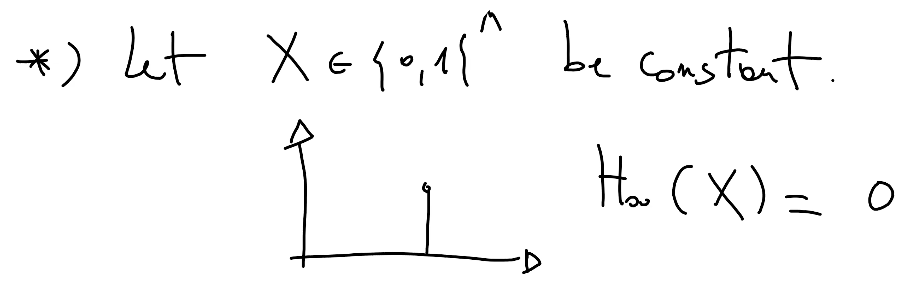 *) Let X ∈ {0,1}^n be constant.
H∞(X) = 0